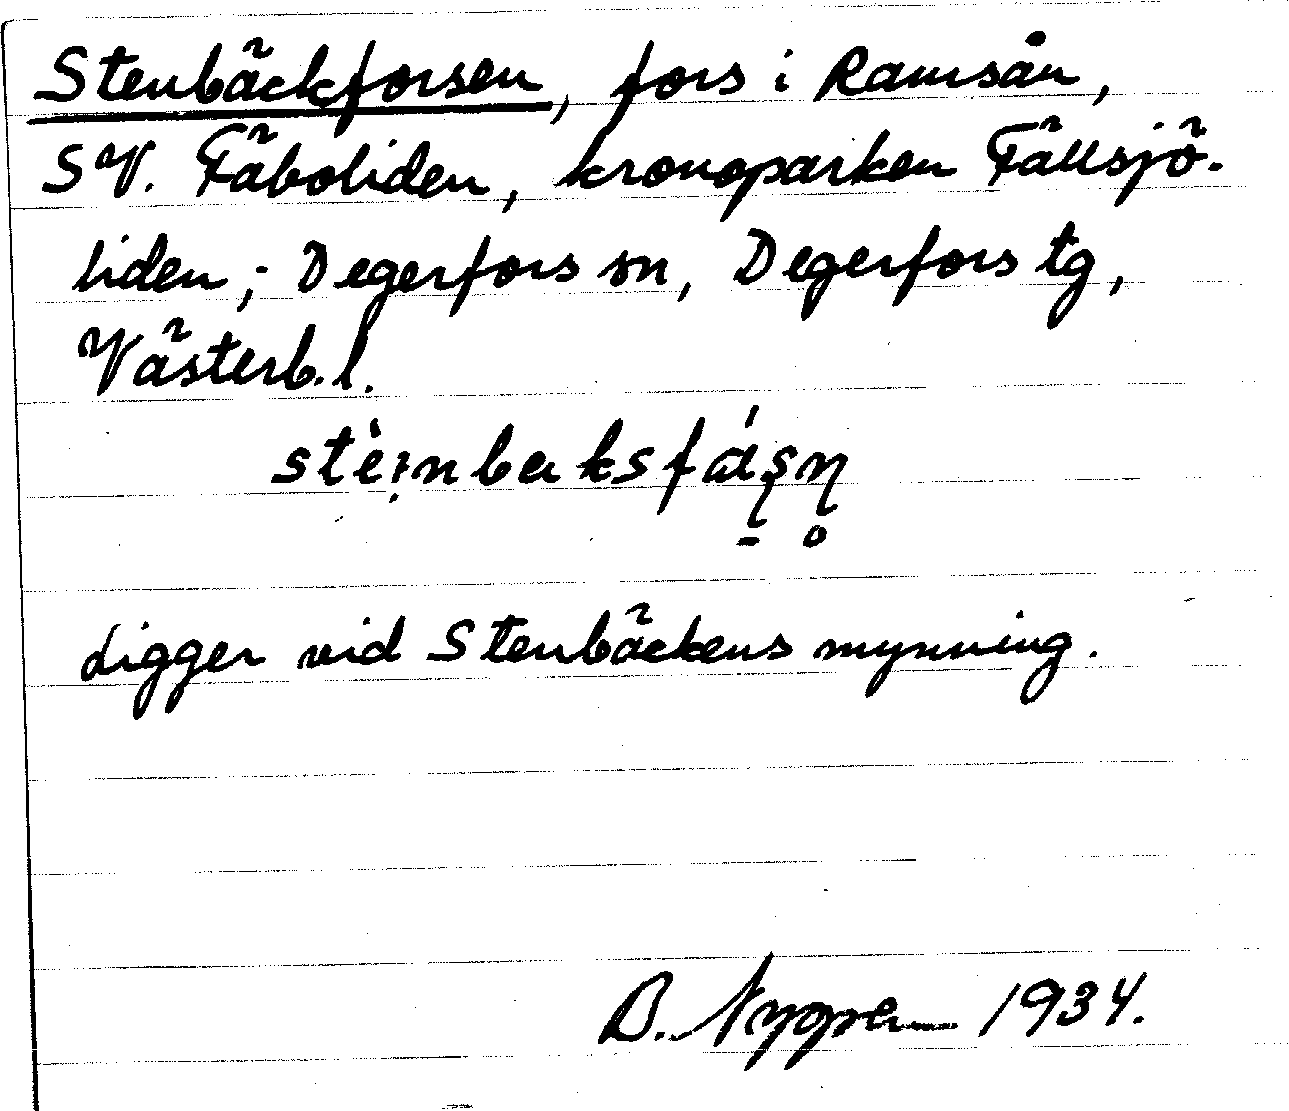 Stenbäckforsen, fors i Ramsån,
SV. Fäboliden, kronoparken Fällsjö-
liden; Degerfors sn, Degerfors tg,
Västerb. l.
Ligger vid Stenbäckens mynning.
B. 1934.